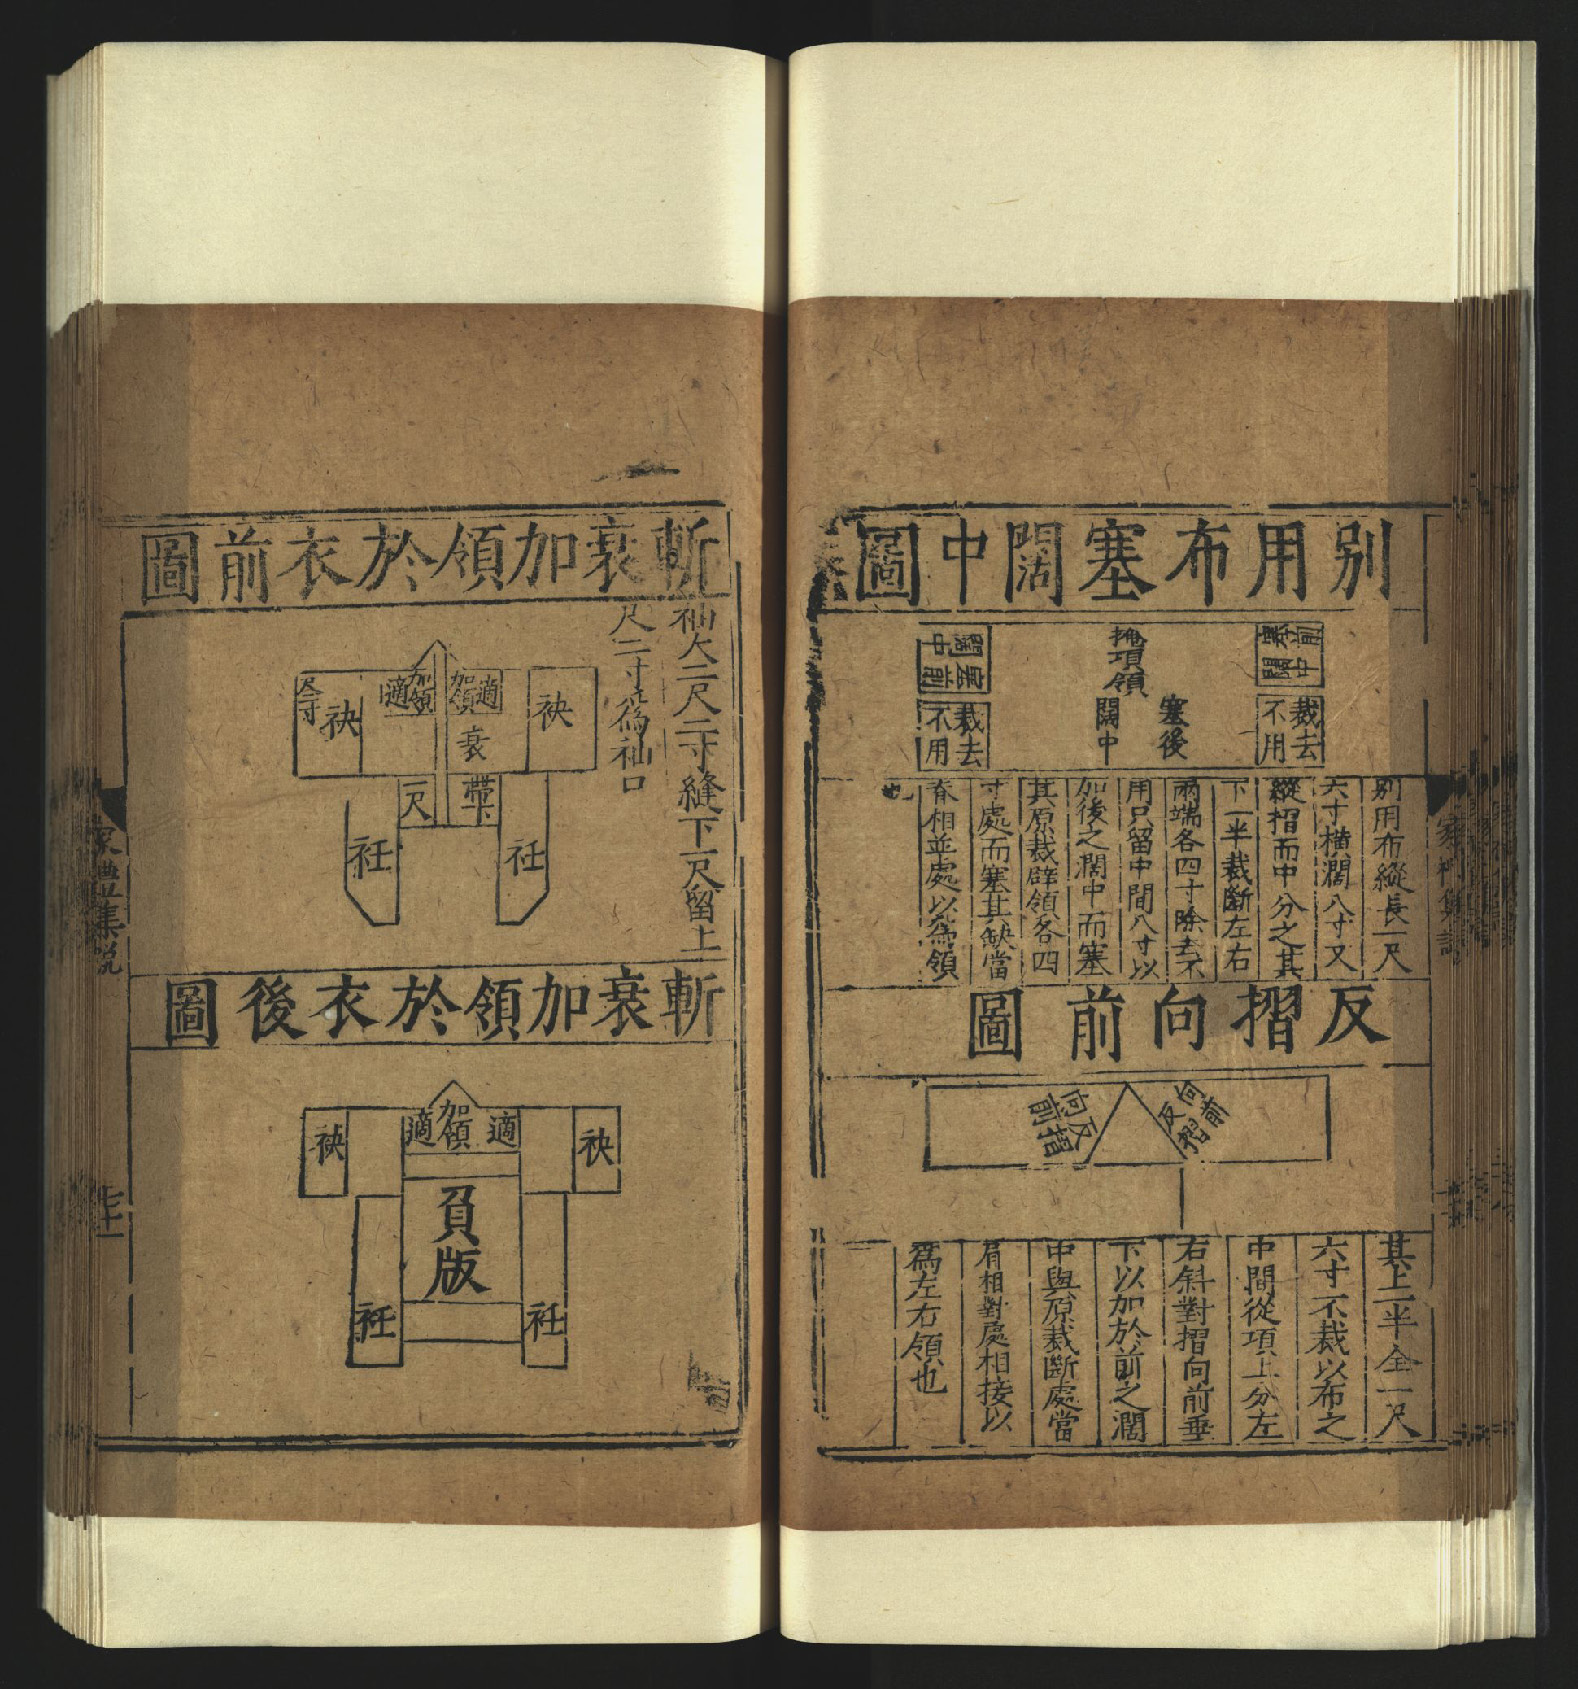 別用布塞闊中圖
前塞
中闊
裁去
不用
掩項領
塞後
闊中
前塞
闊中
裁去
不用
別用布縱長一尺
六寸橫濶八寸又
縱摺而中分之其
下一半裁斷左右
兩端各四寸除去不
用只留中間八寸以
加後之濶中而塞
其原裁辟領各四
寸處而塞其缺當
脊相並處以爲領
也
反摺向前圖
向前
反摺
反摺
向前
其上一半全一尺
六寸不裁以布之
中間從項上分左
右斜對摺向前垂
下以加於前之濶
中與原裁斷處當
肩相對處相接以
爲左右領也
斬衰加領於衣前圖
袖大二尺二寸縫下一尺留上
尺二寸爲袖口
袂
適
加領
衰
加領
適
袂
帶下
一尺
衽
衽
斬衰加領於衣後圖
袂
適
加領
適
袂
負版
衽
衽
家禮集說